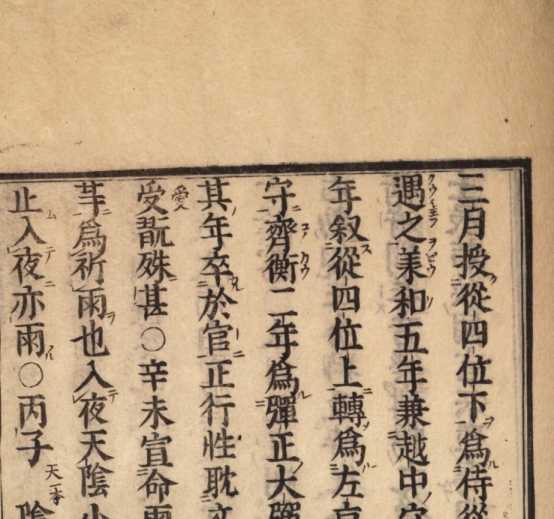 三月授從四位下爲侍從
遇之美和五年兼越中守
年叙從四位上轉爲左京
守齊衡二年爲彈正大弼
其年卒於官正行性耽文
受翫殊甚○辛未宣命
愛
芉爲祈雨也入夜天陰小
止入夜亦雨○丙子
天一本
陰